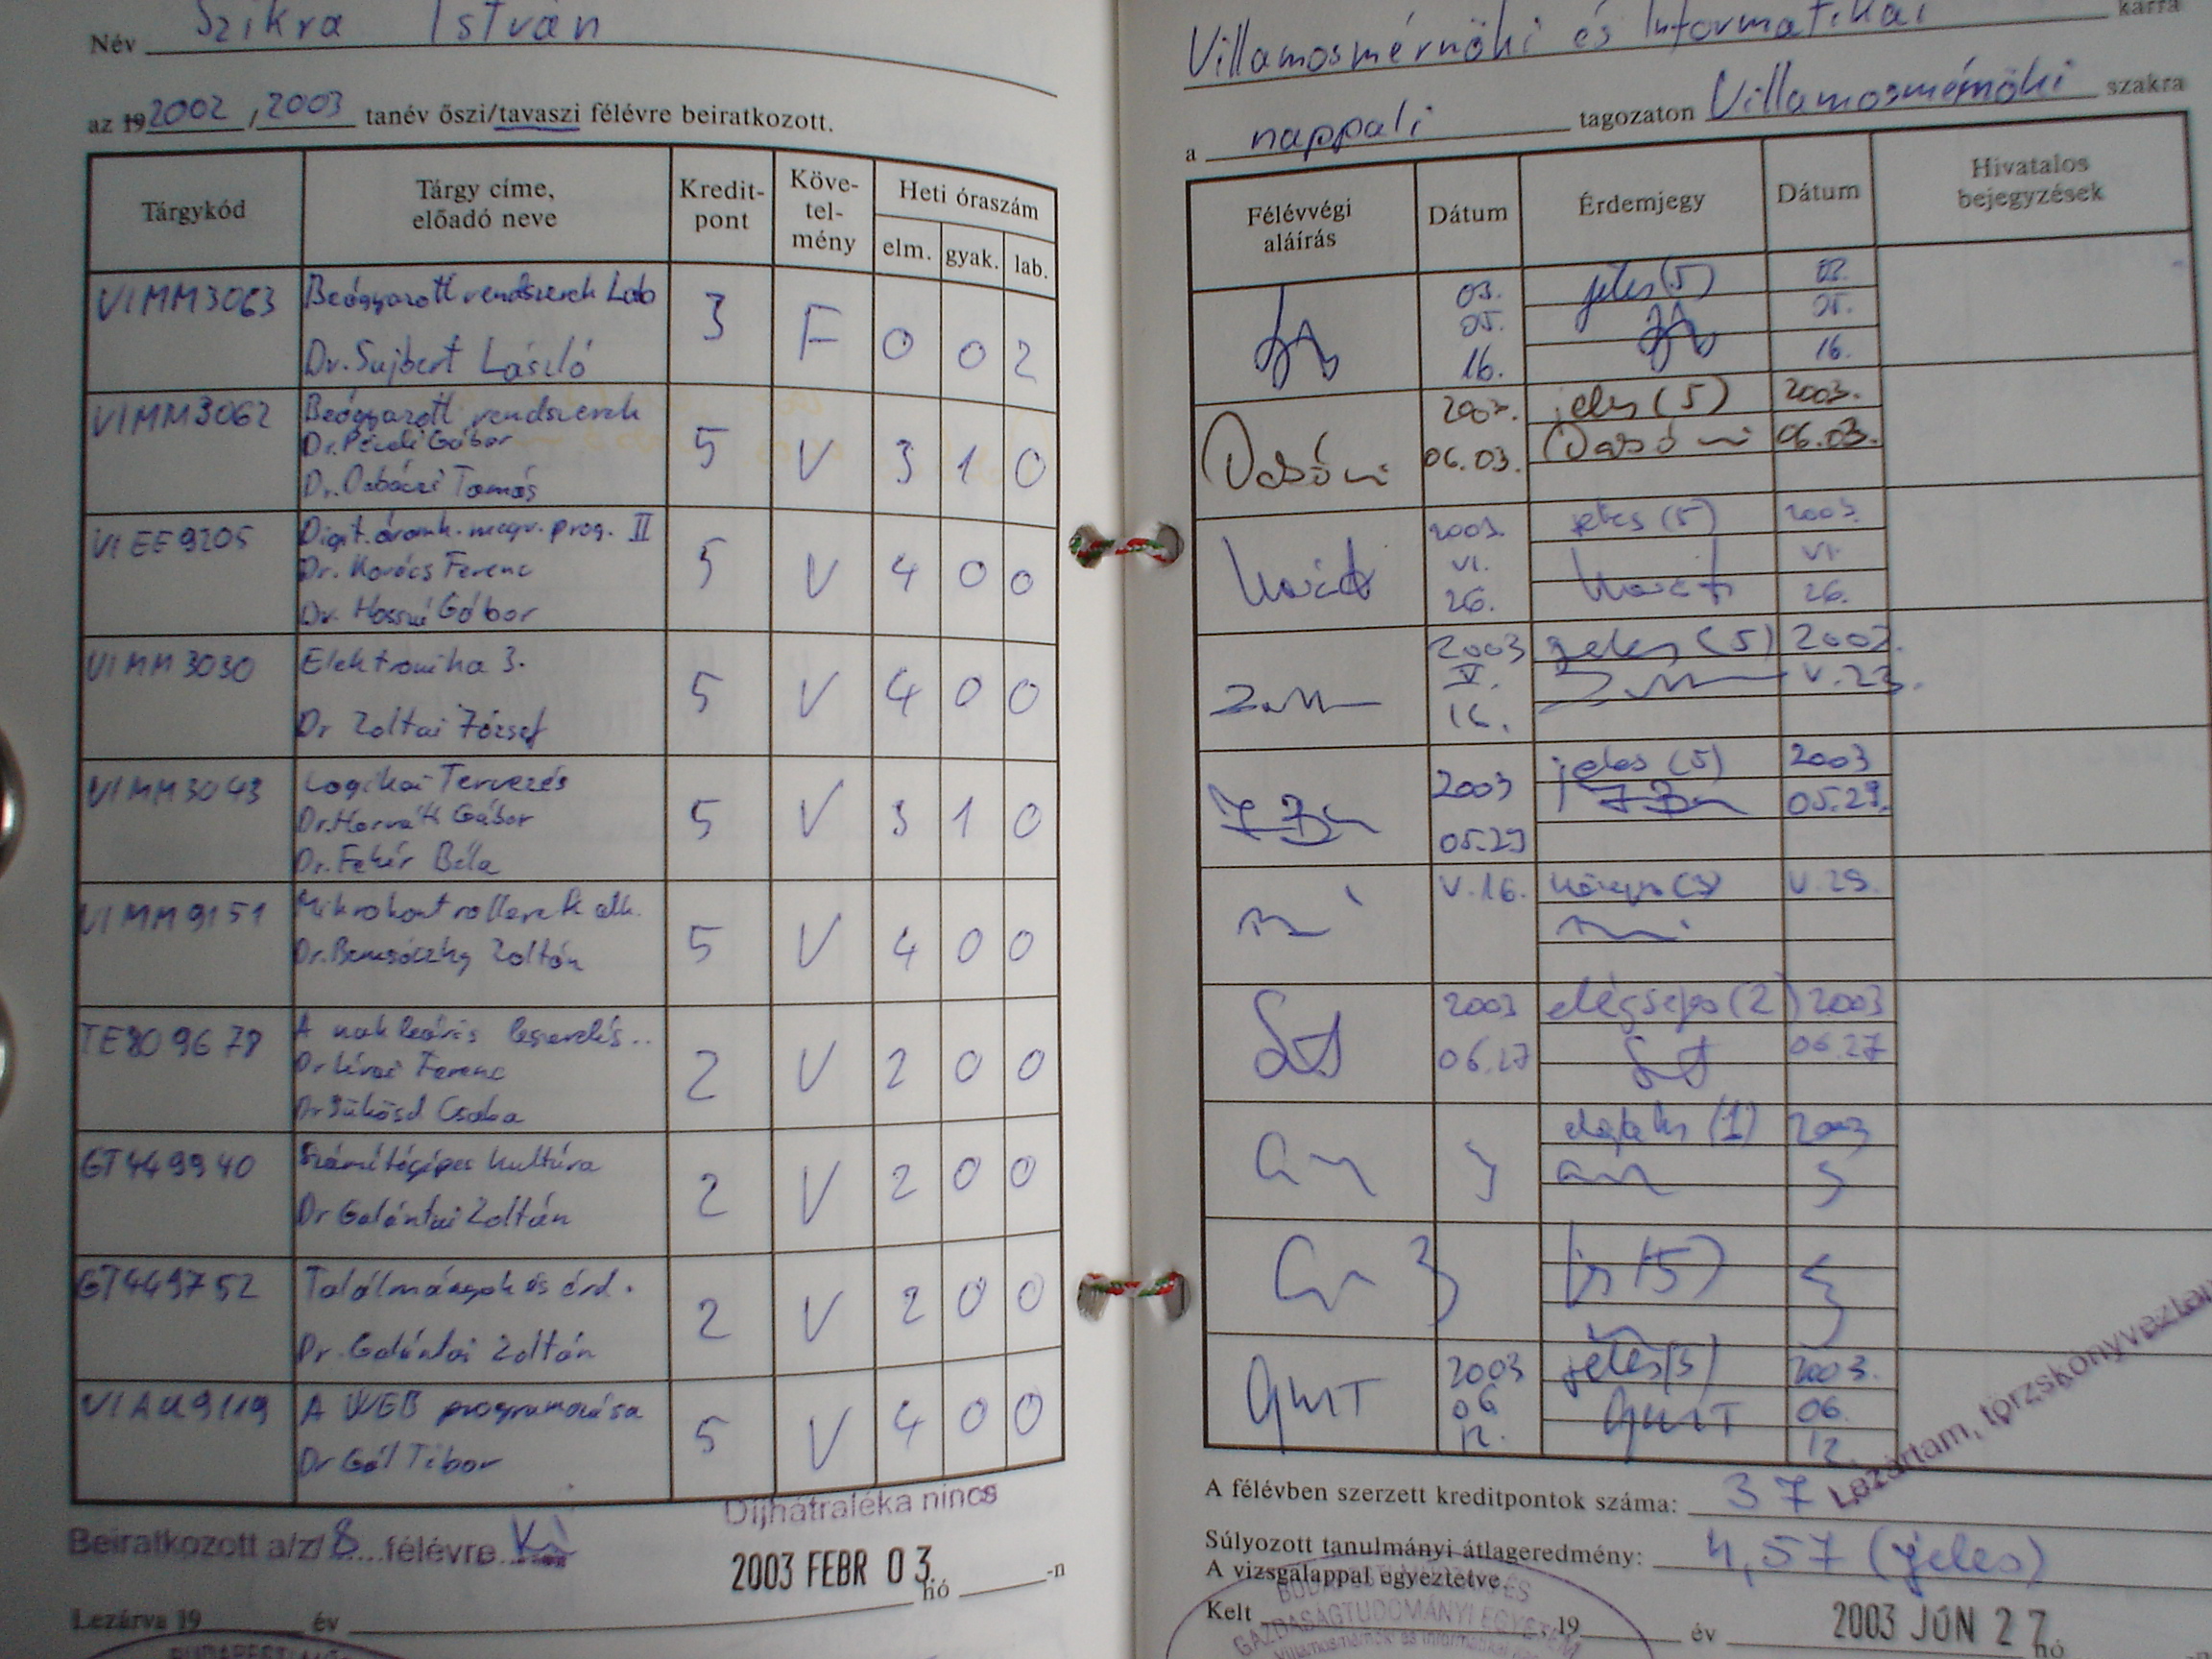 Név Szikra István
az 19 2002, 2003 tanév őszi/tavaszi félévre beiratkozott.
Tárgykód
Tárgy címe, előadó neve
Kredit-pont
Köve-tel-mény
Heti óraszám
elm. gyak. lab.
VIMM3063 Beágyazott rendszerek Lab 3 F 0 0 2
Dr. Sujbert László
VIMM3062 Beágyazott rendszerek 5 V 3 1 0
Dr. Péceli Gábor
Dr. Dabóczi Tamás
VIEE9205 Digit. áramk. megv. prog. II 5 V 4 0 0
Dr. Kovács Ferenc
Dr. Hosszú Gábor
VIMM3030 Elektronika 3. 5 V 4 0 0
Dr Zoltai József
VIMM3043 Logikai Tervezés 5 V 3 1 0
Dr. Horváth Gábor
Dr. Fehér Béla
VIMM9151 Mikrokontrollerek alk. 5 V 4 0 0
Dr. Benesóczky Zoltán
TE809678 A nukleáris leszerelés.. 2 V 2 0 0
Ferenc
Dr Sükösd Csaba
GT449940 Számítógépes kultúra 2 V 2 0 0
Dr Galántai Zoltán
GT449752 Találmányok és érd. 2 V 2 0 0
Dr. Galántai Zoltán
VIAU9119 A WEB programozása 5 V 4 0 0
Dr Gál Tibor
Díjhátraléka nincs
Beiratkozott a/z/ 8 ...félévre
2003 FEBR 03. hó -n
Lezárva 19 év
Villamosmérnöki és Informatikai karra
a nappali tagozaton Villamosmérnöki szakra
Félévvégi aláírás
Dátum
Érdemjegy
Dátum
Hivatalos bejegyzések
03. 05. 16. jeles (5) 03. 05. 16.
2003. 06.03. jeles (5) 2003. 06.03.
2003. VI. 26. jeles (5) 2003. VI. 26.
2003 V. 16. jeles (5) 2003. V. 23.
2003 05.29 jeles (5) 2003 05.29.
V. 16. közepes (3) V. 29.
2003 06.27 elégséges (2) 2003 06.27
elégtelen (1) 2003
(5)
2003 06 12. jeles (5) 2003. 06. 12.
A félévben szerzett kreditpontok száma: 37
Lezártam, törzskönyveztem
Súlyozott tanulmányi átlageredmény: 4,57 (jeles)
A vizsgalappal egyeztetve.
Kelt , 19 év 2003 JÚN 27. hó
GAZDASÁGTUDOMÁNYI EGYETEM
Villamosmérnöki és Informatikai